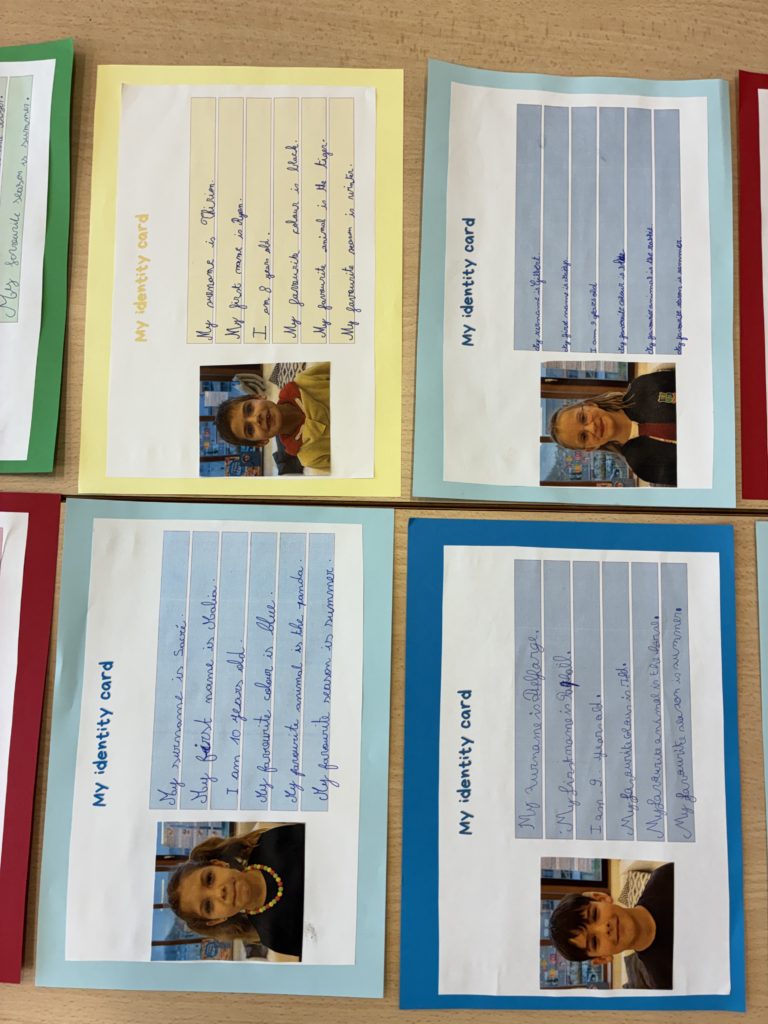 My favourite season is summer.
My identity card
My surname is Thirion.
My first name is Ryan.
I am 8 years old.
My favourite colour is black.
My favourite animal is the tiger.
My favourite season is winter.
My identity card
My surname is Gilbert
My first name is
I am 9 years old
My favourite colour is blue
My favourite animal is the
My favourite season is summer
My identity card
My surname is Sacré.
My first name is Kalia.
I am 10 years old.
My favourite colour is blue.
My favourite animal is the panda.
My favourite season is summer.
My identity card
My surname is Delfarge.
My first name is
I am 9 years old.
My favourite colour is red.
My favourite animal is the horse.
My favourite season is summer.